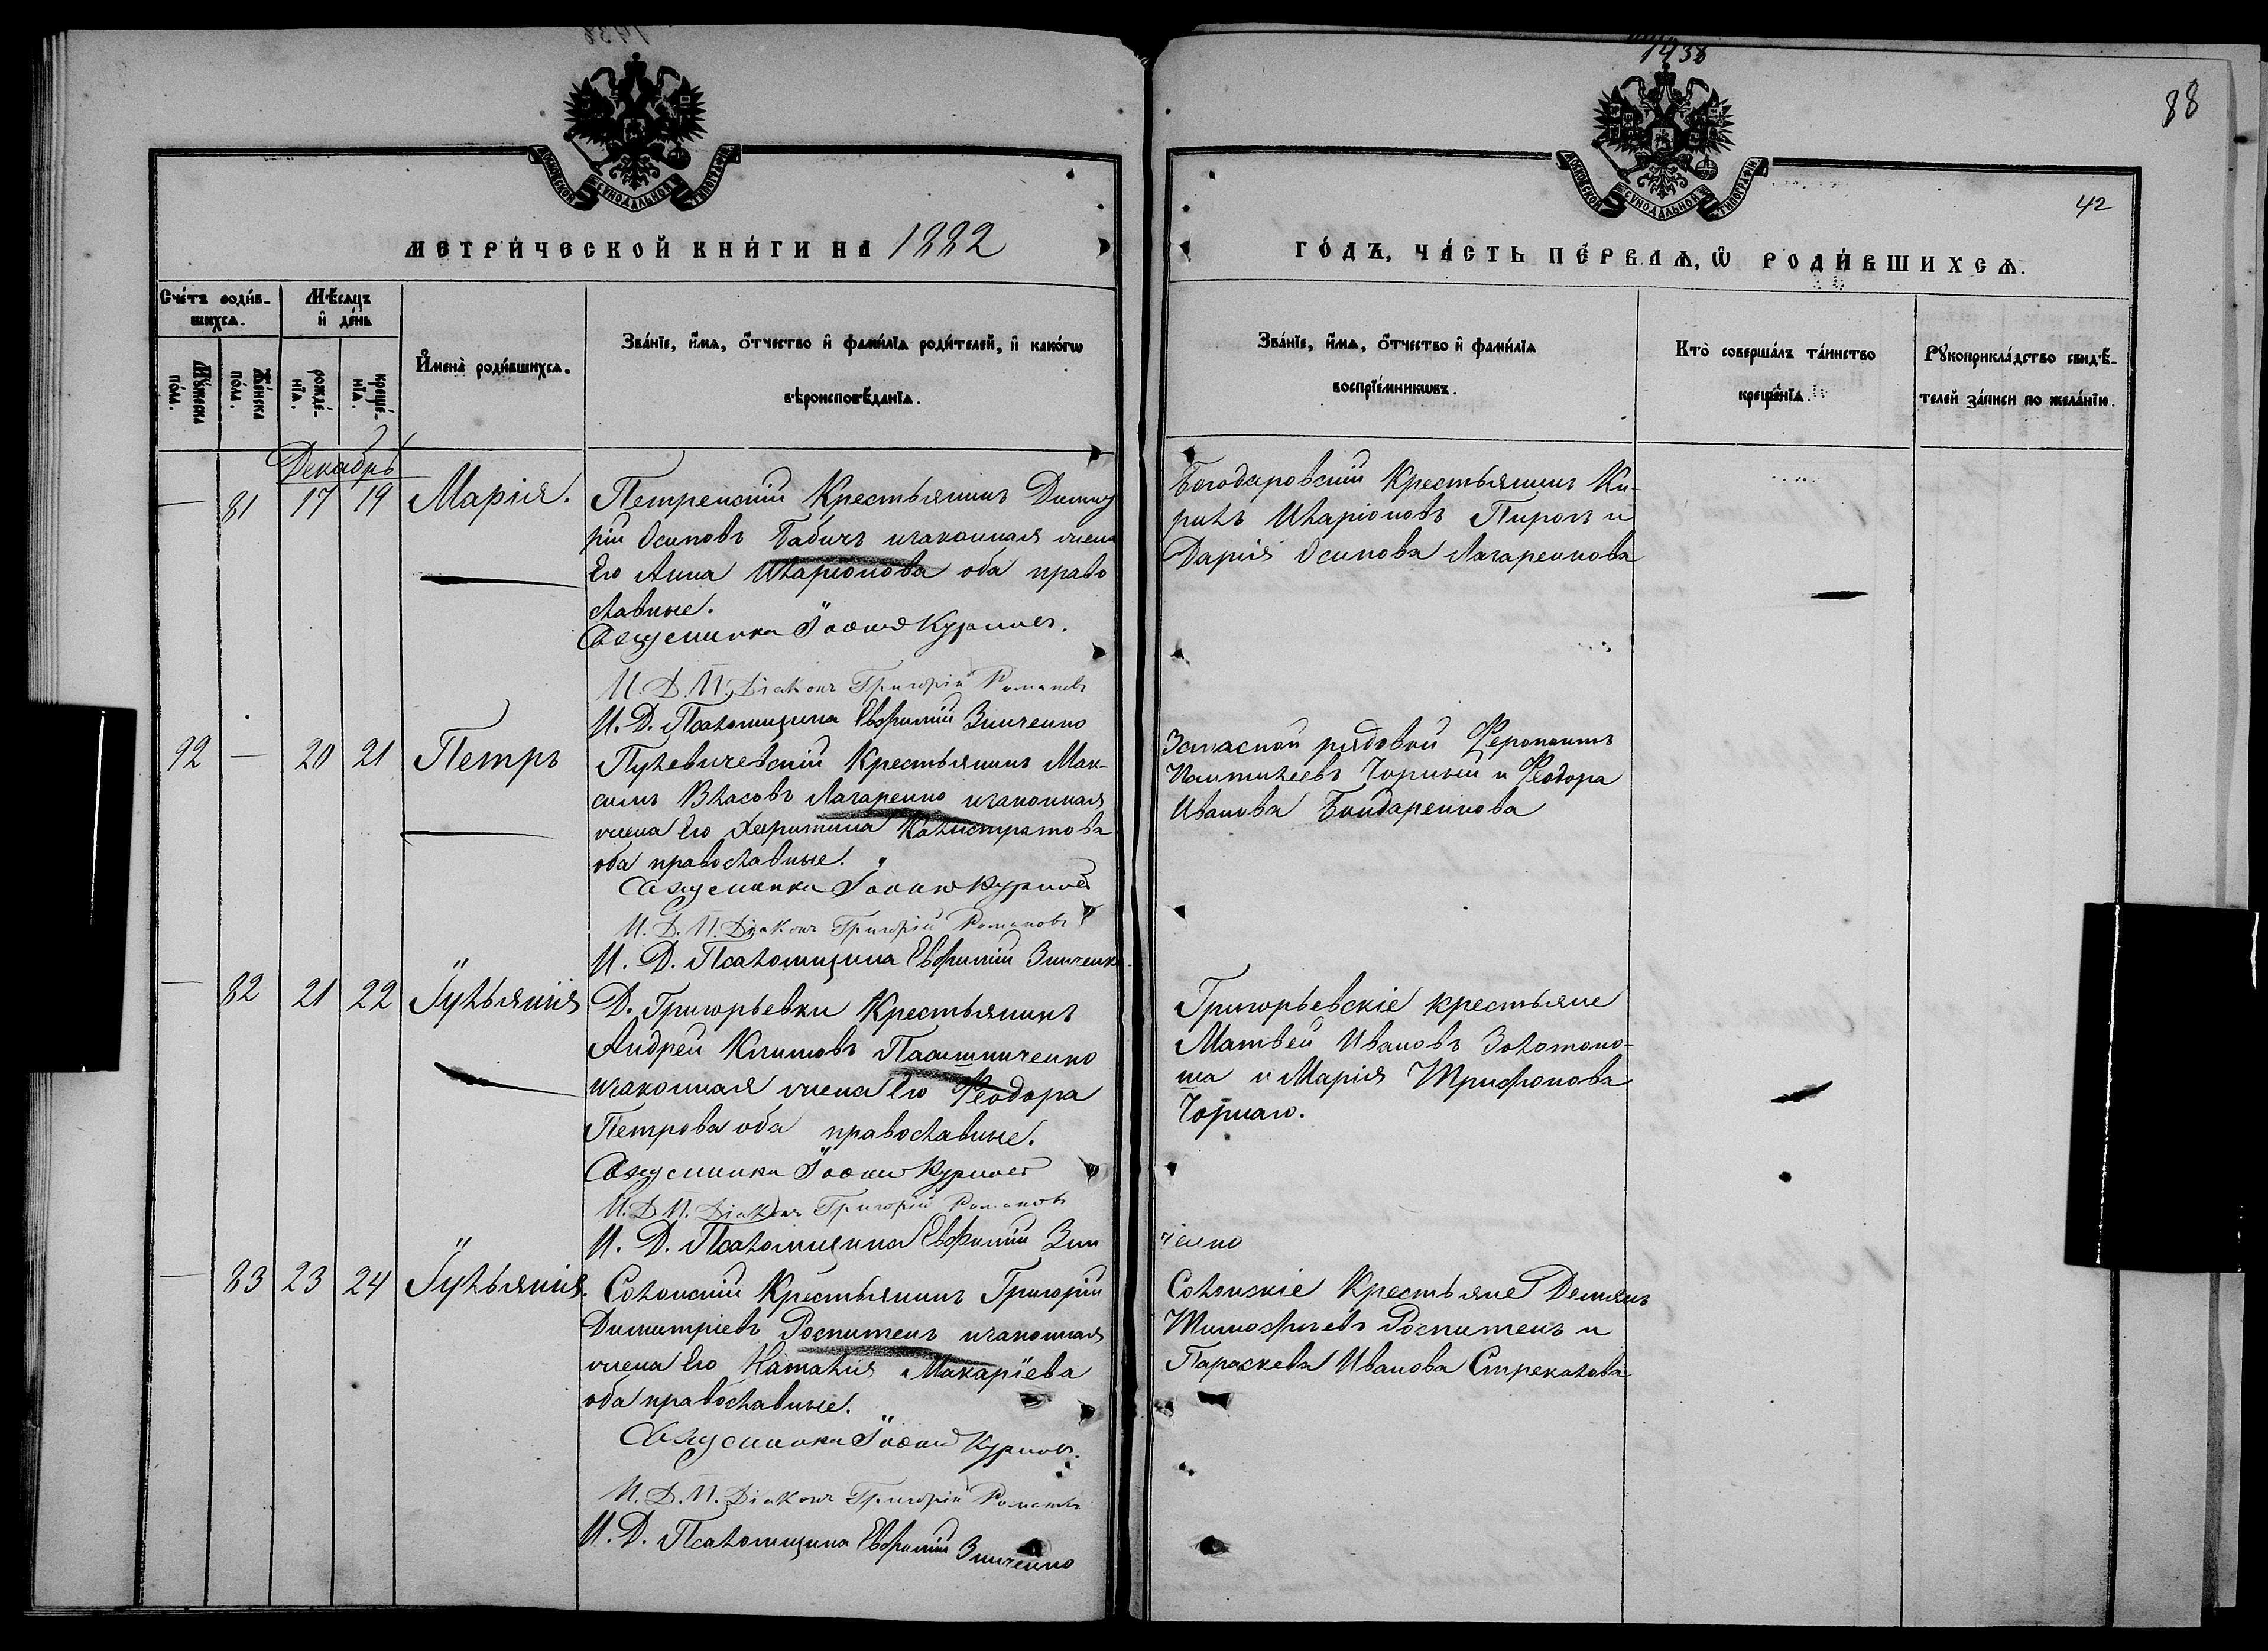 1438
88
МОСКОВСКОЙ СѴНОДАЛЬНОЙ ТИПОГРАФІИ
МОСКОВСКОЙ СѴНОДАЛЬНОЙ ТИПОГРАФІИ
42
МЕТРИ́ЧЕСКОЙ КНИ́ГИ НА 1882
ГО́ДЪ, ЧА́СТЬ ПЕ́РВАѦ, Ѡ҆ РОДИ́ВШИХСѦ.
Сче́тъ роди́в-
шихсѧ.
Мꙋ́жеска по́ла.
Же́нска по́ла.
Мѣ́сѧцъ
и҆ де́нь
рожде́-
нїѧ.
креще́-
нїѧ.
И҆мена̀ роди́вшихсѧ.
Зва́нїе, и҆́мѧ, о҆́тчество и҆ фами́лїѧ роди́телей, и҆ како́гѡ
вѣроисповѣ́данїѧ.
Зва́нїе, и҆́мѧ, о҆́тчество и҆ фами́лїѧ
воспрїе́мникѡвъ.
Кто̀ соверша́лъ та́инство
креще́нїѧ.
Рꙋкоприкла́дство свидѣ́-
телей за́писи по жела́нїю.
Декабрь
— 81 17 19 Марія.
Петренскій Крестьянинъ Димит
рій Осиповъ Бабичъ и законная жена
Его Анна Иларіонова оба право
славные.
Іоаннъ Курилов.
И. Д. П. Діаконъ Григорій Романовъ
И. Д. Псаломщика Евфимій Зинченко
Богодаровскій Крестьянинъ Ки-
рилъ Иларіоновъ Пирогъ и
Дарія Осипова Лазаренкова
92 — 20 21 Петръ
Крестьянинъ Мак-
симъ Власовъ Лазаренко и законная
жена Его Харитина Калистратова
оба православные.
Іоаннъ Курилов
И. Д. П. Діаконъ Григорій Романовъ
И. Д. Псаломщика Евфимій Зинченко.
Запасной рядовой Ферапонтъ
Пантилеевъ Чорный и Феодора
Иванова Бондаренкова
— 82 21 22 Іульянія
Д. Григорьевки Крестьянинъ
Андрей Климовъ
и законная жена Его Феодора
Петрова оба православные.
Іоаннъ Курилов
И. Д. П. Діаконъ Григорій Романовъ
И. Д. Псаломщика Евфимій Зин
ченко
Григорьевскіе крестьяне
Матвей Ивановъ Золотоно-
ша и Марія Трифонова
Чорнаго.
— 83 23 24 Іульянія.
Солонскій Крестьянинъ Григорій
Димитріевъ Роспитенъ и законная
жена Его Наталія Макаріева
оба православные.
Іоаннъ Курилов.
И. Д. П. Діаконъ Григорій Романовъ
И. Д. Псаломщика Евфимій Зинченко
Солонскіе Крестьяне Демянъ
Тимофѣевъ Роспитенъ и
Параскева Иванова Стрекалова